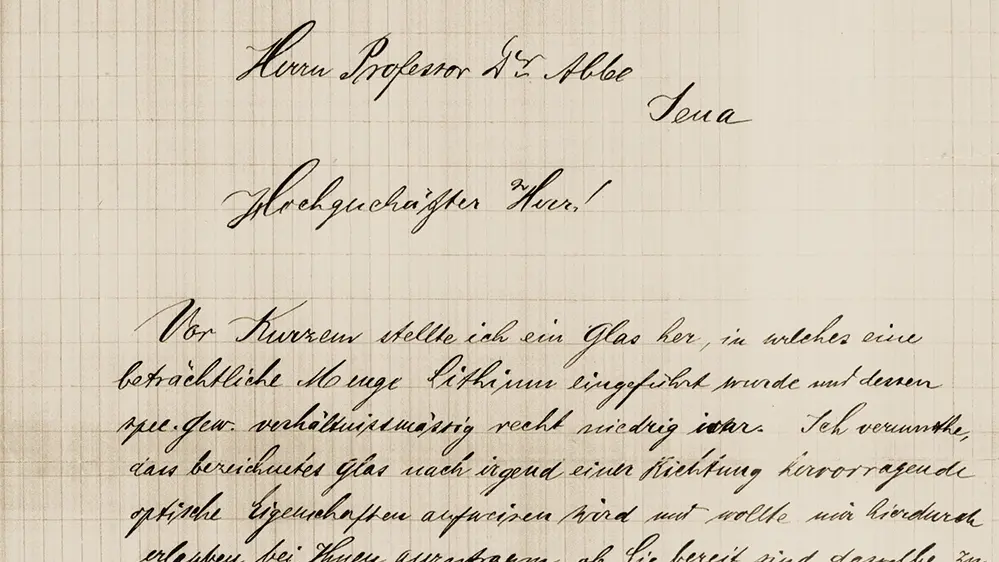 Herrn Professor Dr Abbe
Jena
Hochgeschätzter Herr!
Vor Kurzem stellte ich ein Glas her, in welches eine
beträchtliche Menge Lithium eingeführt wurde und dessen
spec. Gew. verhältnissmässig recht niedrig war. Ich vermuthe,
dass bezeichnetes Glas nach irgend einer Richtung hervorragende
optische Eigenschaften aufweisen wird und wollte mir hierdurch
erlauben bei Ihnen anzufragen, ob Sie bereit sind dasselbe zu